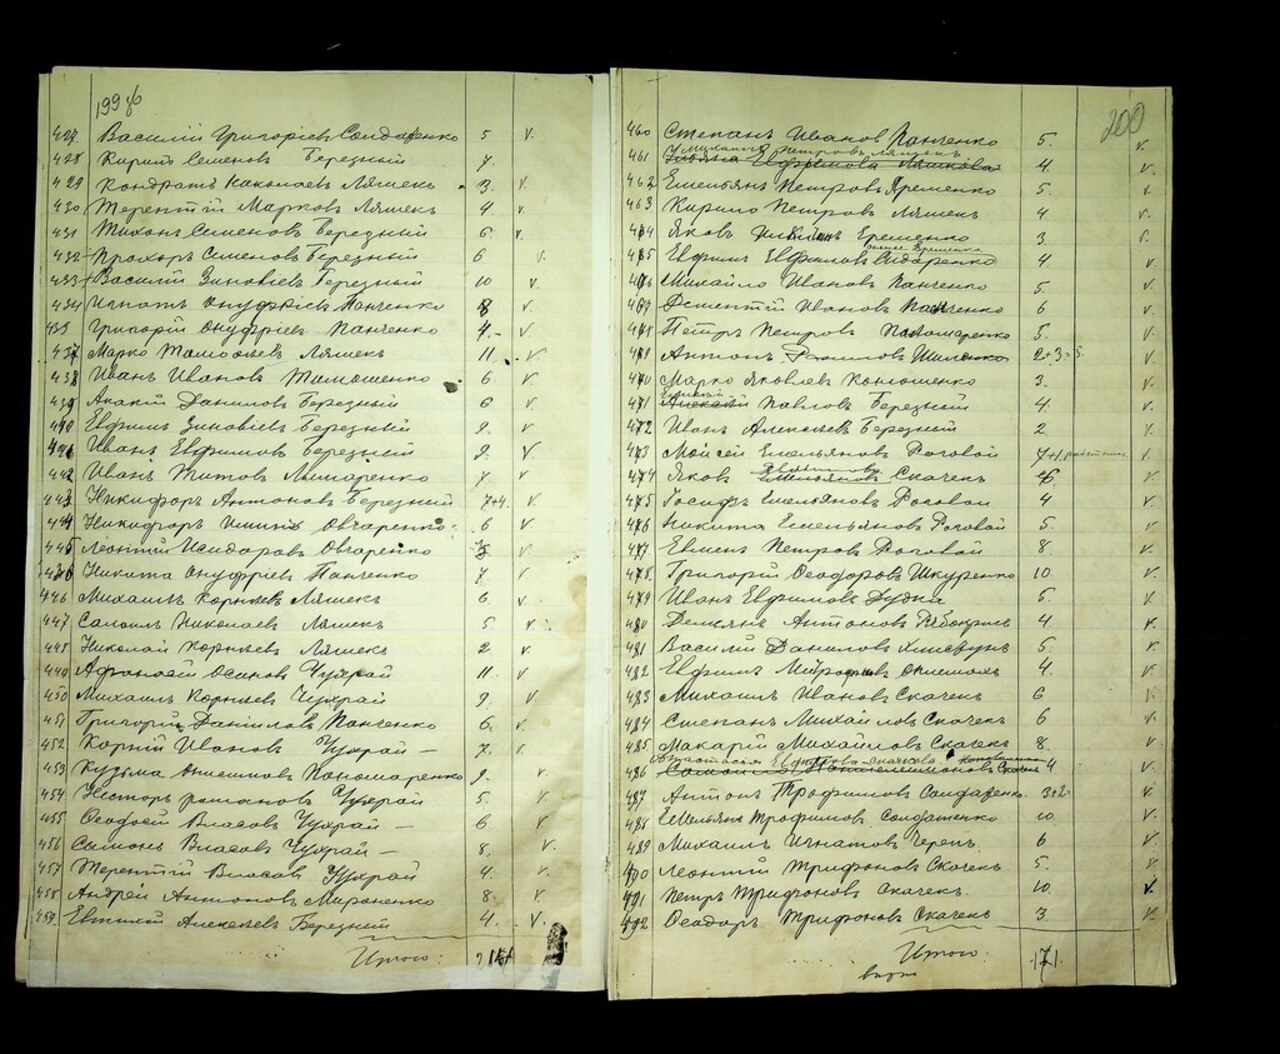 199 об
427 Василій Григоріев Солдатенко 5 v.
428 Кирило Семенов Березный 7.
429 Кондратъ Николаев Ляшекъ 3. v.
430 Терентій Марков Ляшекъ 4. v.
431 Тихонъ Семенов Березный 6. v.
432 Прохоръ Семенов Березный 6 v.
433 Василій Зиновіев Березный 10 v.
434 Игнатъ Онуфріев Панченко 8 v.
435 Григорій Онуфріев Панченко 4. v.
437 Марко Тимофѣев Ляшекъ 11. v.
438 Иванъ Иванов Тимошенко 6. v.
439 Акакій Данилов Березный 6 v.
440 Евфимъ Зиновіев Березный 9. v.
441 Иванъ Евфимов Березный 9. v.
442 Иванъ Титов 7 v.
443 Никифоръ Антонов Березный 7+4. v.
444 Никифоръ Овчаренко 6 v.
445 Леонтій Исидоров Овчаренко v.
Никита Онуфріев Панченко 7 v.
446 Михаилъ Корнѣев Ляшекъ 6. v.
447 Самоилъ Николаев Ляшекъ 5 v.
448 Николай Корнѣев Ляшекъ 2 v.
449 Афонасій Осипов Чухрай 11. v
450 Михаилъ Корнѣев Чухрай 9. v.
451 Григорій Даніилов Панченко 6. v.
452 Корній Иванов Чухрай — 7. v.
453 Кузьма Онисимов Пономаренко 9. v.
454 Несторъ Романов Чухрай 5. v.
455 Феодосій Власов Чухрай — 6. v.
456 Симонъ Власов Чухрай — 8. v.
457 Терентій Власов Чухрай 4. v.
458 Андрей Антонов Мироненко 8. v.
459 Евтихій Алексѣев Березный 4. v.
Итого:
200
460 Степанъ Иванов Панченко 5. v.
Михаилъ Петровъ Ляшекъ
461 Евфимова Ляшкова 4. v.
462 Емельянъ Петров Яременко 5. v.
463 Кирило Петров Ляшекъ 4 v.
464 Яков Еременко 3. v.
465 Евфимъ Евфимов Сидоренко 4. v.
466 Михайло Иванов Панченко 5. v.
467 Дементій Иванов Панченко 6 v.
468 Петръ Петров Пономаренко 5. v.
469 Антонъ Шиленко 2+3=5. v.
470 Марко Яковлев Коношенко 3. v.
471 Алексѣй Павлов Березный 4. v.
472 Иванъ Алексѣев Березный 2 v.
473 Мойсей Емельянов Роговой 7+1 v.
474 Яков Емельянов Скачекъ 6 v.
475 Іосифъ Емельянов Роговой 4 v.
476 Никита Емельянов Роговой 5. v.
477 Евмен Петров Роговой 8. v.
478. Григорій Феодоров Шкуренко 10. v.
479 Иванъ Евфимов Дудка 5. v.
480 Демьянъ Антонов Рябоконь 4. v.
481 Василій Данилов 5. v.
482 Евфимъ Митрофанов 4. v.
483 Михаилъ Иванов Скачекъ 6 v.
484 Степанъ Михайлов Скачекъ 6 v.
485 Макарій Михайлов Скачекъ 8. v.
Анастасія Евфимова Скачкова
486 Самоилъ Пантелеимонов Скачекъ 4 v.
487 Антонъ Трофимов Солдатенко. 3+2= v.
488 Емельянъ Трофимов Солдатенко 10. v.
489 Михаилъ Игнатов Черепъ 6 v.
490 Леонтій Трифонов Скачекъ 5. v.
491 Петръ Трифонов Скачекъ. 10. v.
492 Феодоръ Трифонов Скачекъ 3. v.
Итого: 171.